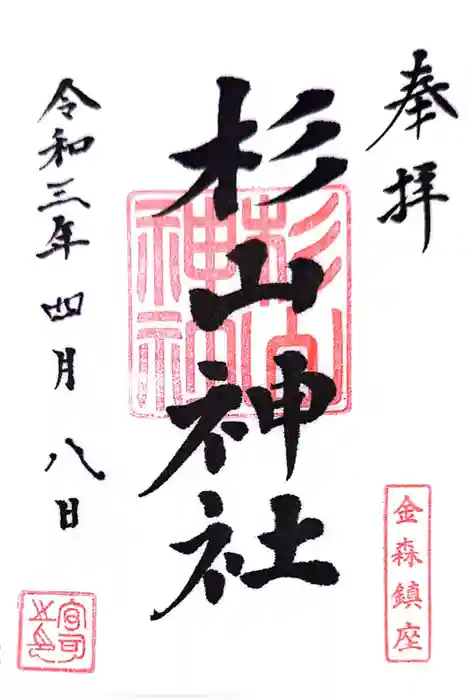 奉拝
杉山神社
杉山神社
金森鎮座
令和三年四月八日
宮司之印